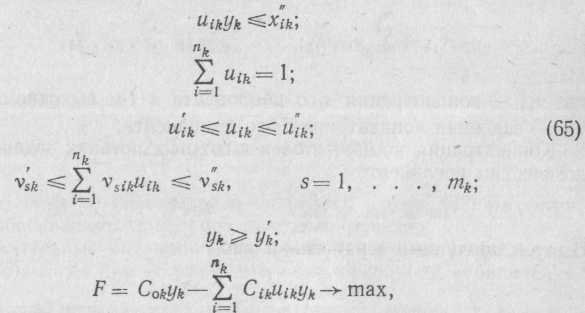 u_{ik} y_k ⩽ x''_{ik};
\sum_{i=1}^{n_k} u_{ik} = 1;
u'_{ik} ⩽ u_{ik} ⩽ u''_{ik}; (65)
ν'_{sk} ⩽ \sum_{i=1}^{n_k} ν_{sik} u_{ik} ⩽ ν''_{sk}, s = 1, . . . , m_k;
y_k ⩾ y'_k;
F = C_{ok} y_k — \sum_{i=1}^{n_k} C_{ik} u_{ik} y_k → max,